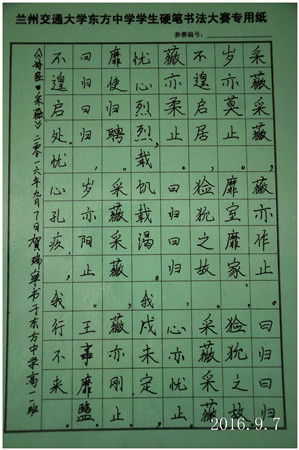 兰州交通大学东方中学学生硬笔书法大赛专用纸
参赛编号:
采薇采薇,薇亦作止。曰归曰归,
岁亦莫止。靡室靡家,猃狁之故。
不遑启居,猃狁之故。采薇采薇,
薇亦柔止。曰归曰归,心亦忧止。
忧心烈烈,载饥载渴。我戍未定,
靡使归聘。采薇采薇,薇亦刚止。
曰归曰归,岁亦阳止。王事靡盬,
不遑启处。忧心孔疚,我行不来。
《诗经·采薇》二零一六年九月7日贺瑞华书于东方中学高一班
2016.9.7